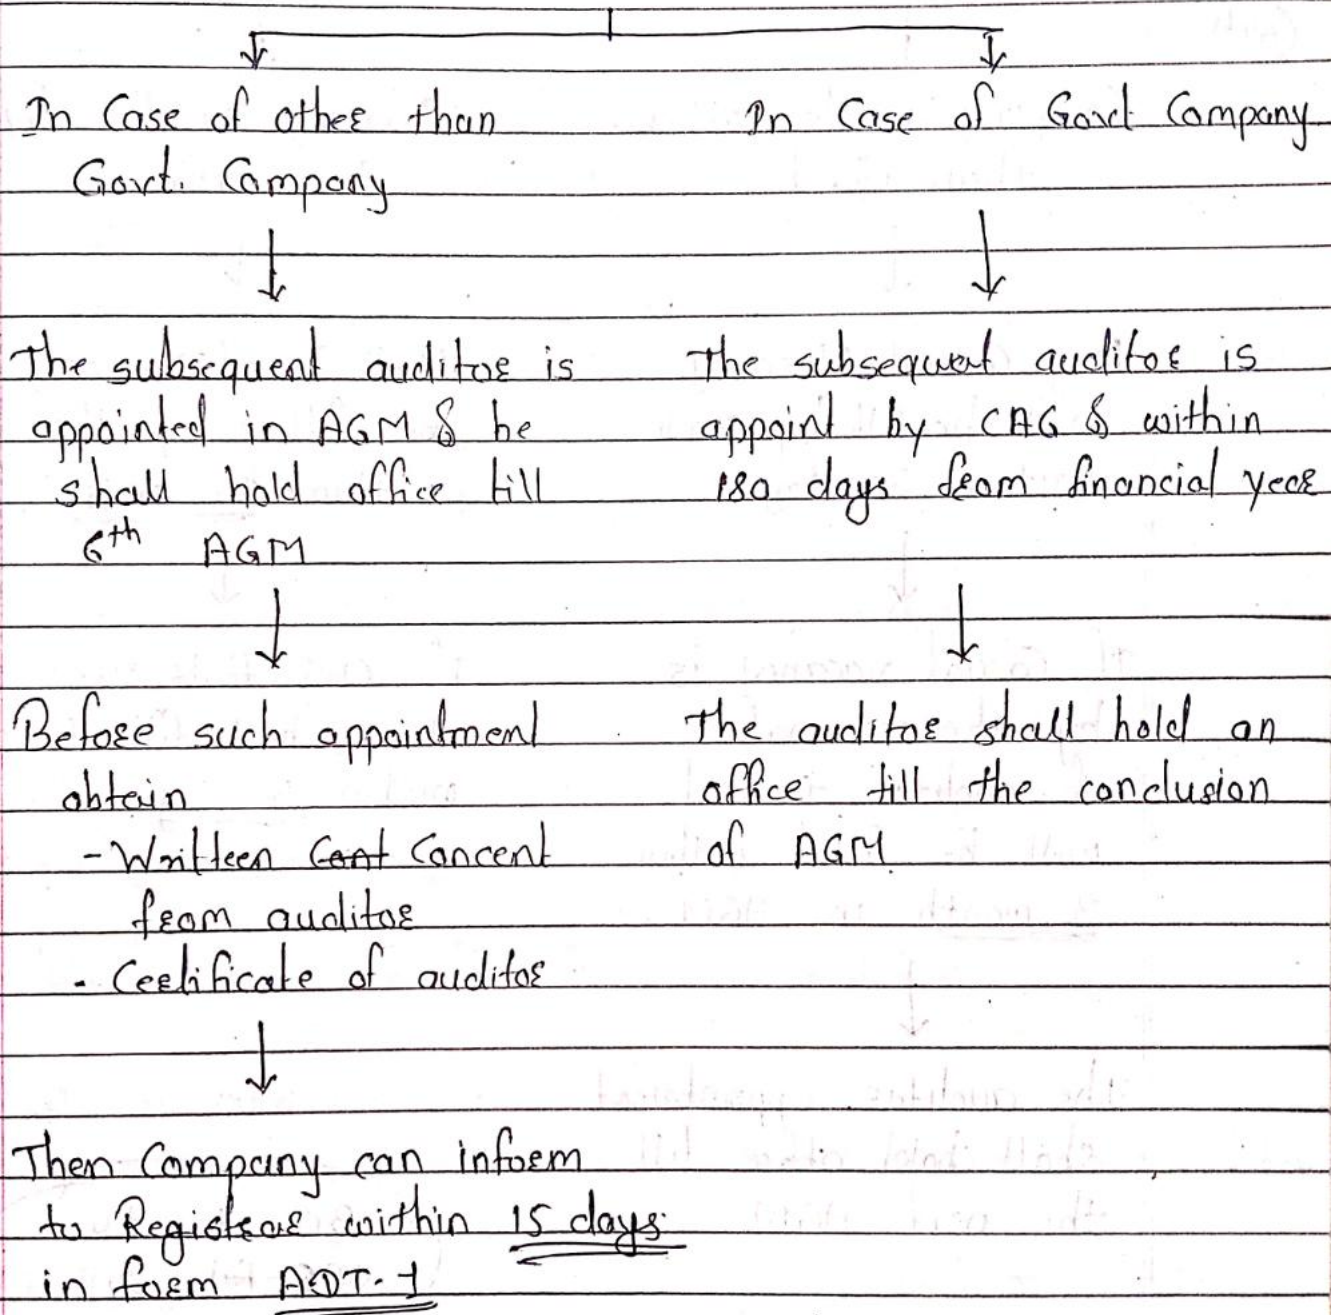 In Case of other than
Govt. Company
The subsequent auditor is
appointed in AGM & he
shall hold office till
6th AGM
Before such appointment
obtain
- Writteen Cont Concent
from auditor
- Certificate of auditor
Then Company can inform
to Registrar within 15 days.
in form ADT-1
In Case of Govt Company
The subsequent auditor is
appoint by CAG & within
180 days from financial year
The auditor shall hold an
office till the conclusion
of AGM